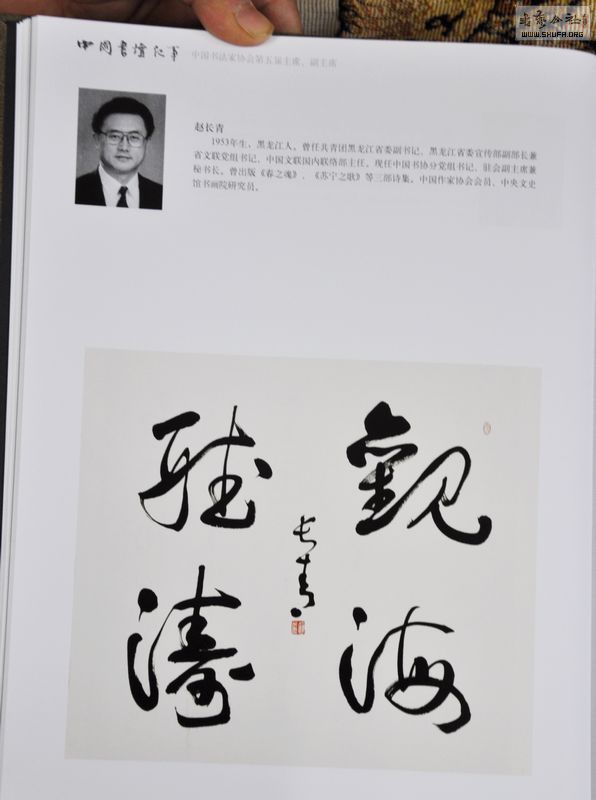 书艺公社
WWW.SHUFA.ORG
中国书坛纪事
中国书法家协会第五届主席、副主席
赵长青
1953年生，黑龙江人。曾任共青团黑龙江省委副书记、黑龙江省委宣传部副部长兼
省文联党组书记、中国文联国内联络部主任。现任中国书协分党组书记、驻会副主席兼
秘书长。曾出版《春之魂》、《苏宁之歌》等三部诗集。中国作家协会会员、中央文史
馆书画院研究员。
觀海
聽濤
长青